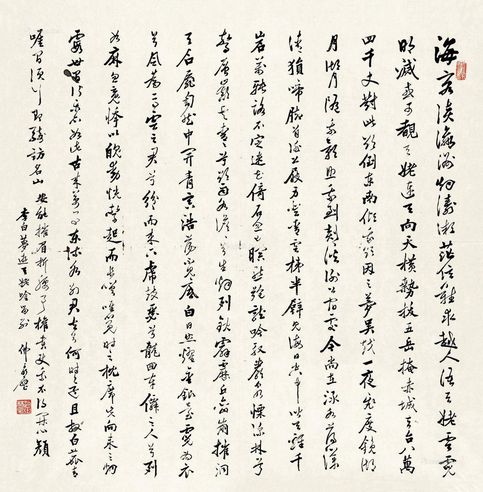 海客谈瀛洲烟涛微茫信難求越人语天姥雲霓
明滅或可覩天姥連天向天横势拔五岳掩赤城天台八萬
四千丈對此欲倒东南倾我欲因之夢吴越一夜飛度鏡湖
月湖月照我影送我至剡溪谢公宿處今尚在渌水荡漾
清猿啼脚著谢公屐身登青雲梯半壁見海日空中闻天雞千
岩萬转路不定迷花倚石忽已暝熊咆龍吟殷巖泉慄深林兮
驚層巅雲青青兮欲雨水澹澹兮生烟列缺霹靂丘峦崩摧洞
天石扉訇然中開青冥浩荡不見底日月照耀金銀臺霓为衣
兮風为馬雲之君兮紛紛而来下虎鼓瑟兮鸞回車僊之人兮列
如麻忽魂悸以魄動怳驚起而长嗟惟覺时之枕席失向来之烟
霞世間行乐亦如此古来萬事东流水别君去兮何时还且放白鹿青
崖間须行即骑访名山安能摧眉折腰事權贵使我不得开心颜
李白夢遊天姥吟留别